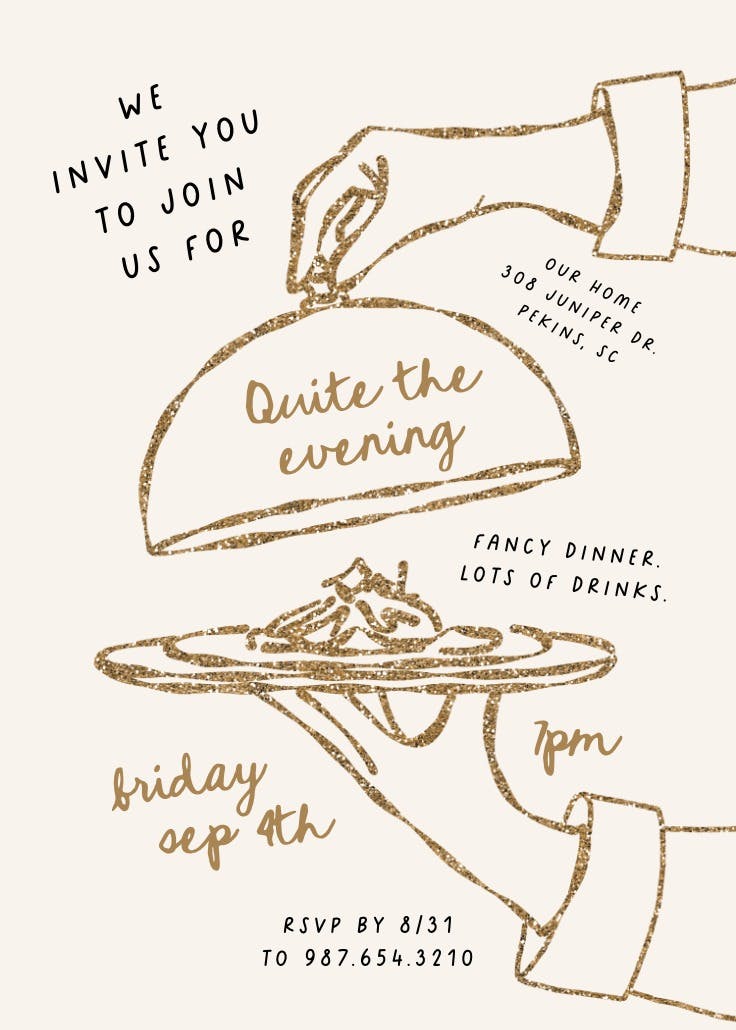 WE
INVITE YOU
TO JOIN
US FOR
OUR HOME
308 JUNIPER DR.
PEKINS, SC
Quite the
evening
FANCY DINNER.
LOTS OF DRINKS.
7pm
friday
sep 4th
RSVP BY 8/31
TO 987.654.3210